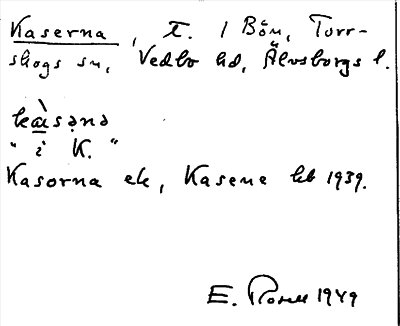 Kaserna, T. / Bön, Torr-
skogs sn, Vedbo hd, Älvsborgs l.
kæ̀sənə
" i K. "
Kasorna ek, Kasene kb 1939.
E. Rosell 1949